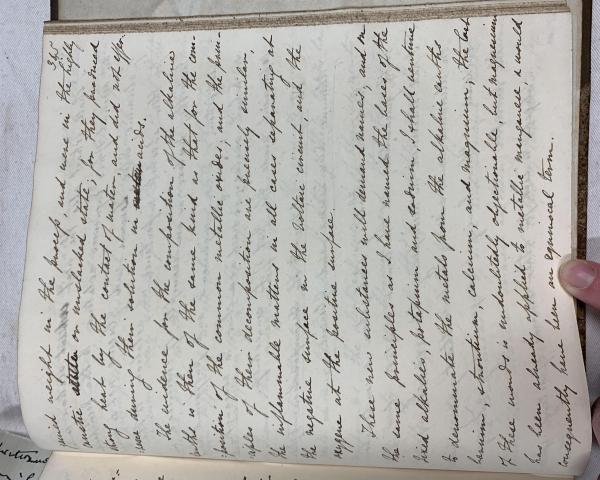 305
uired weight in the process, and were in the highly
caustic or unslacked state, for they produced
strong heat by the contact of water, and did not effer-
-vesce during their solution in acids.
The evidence for the composition of the alkaline
earths is then of the same kind as that for the com-
-position of the common metallic oxides; and the prin-
-ciples of their decomposition are precisely similar,
the inflammable matters in all cases separating at
the negative surface in the Voltaic circuit, and the
oxygene at the positive surface.
These new substances will demand names; and on
the same principles as I have named the bases of the
fixed alkalies, potassium and sodium, I shall venture
to denominate the metals from the alkaline earths
barium, strontium, calcium, and magnium; the last
of these words is undoubtedly objectionable, but magnesium
has been already applied to metallic manganese, & would
consequently have been an equivocal term.